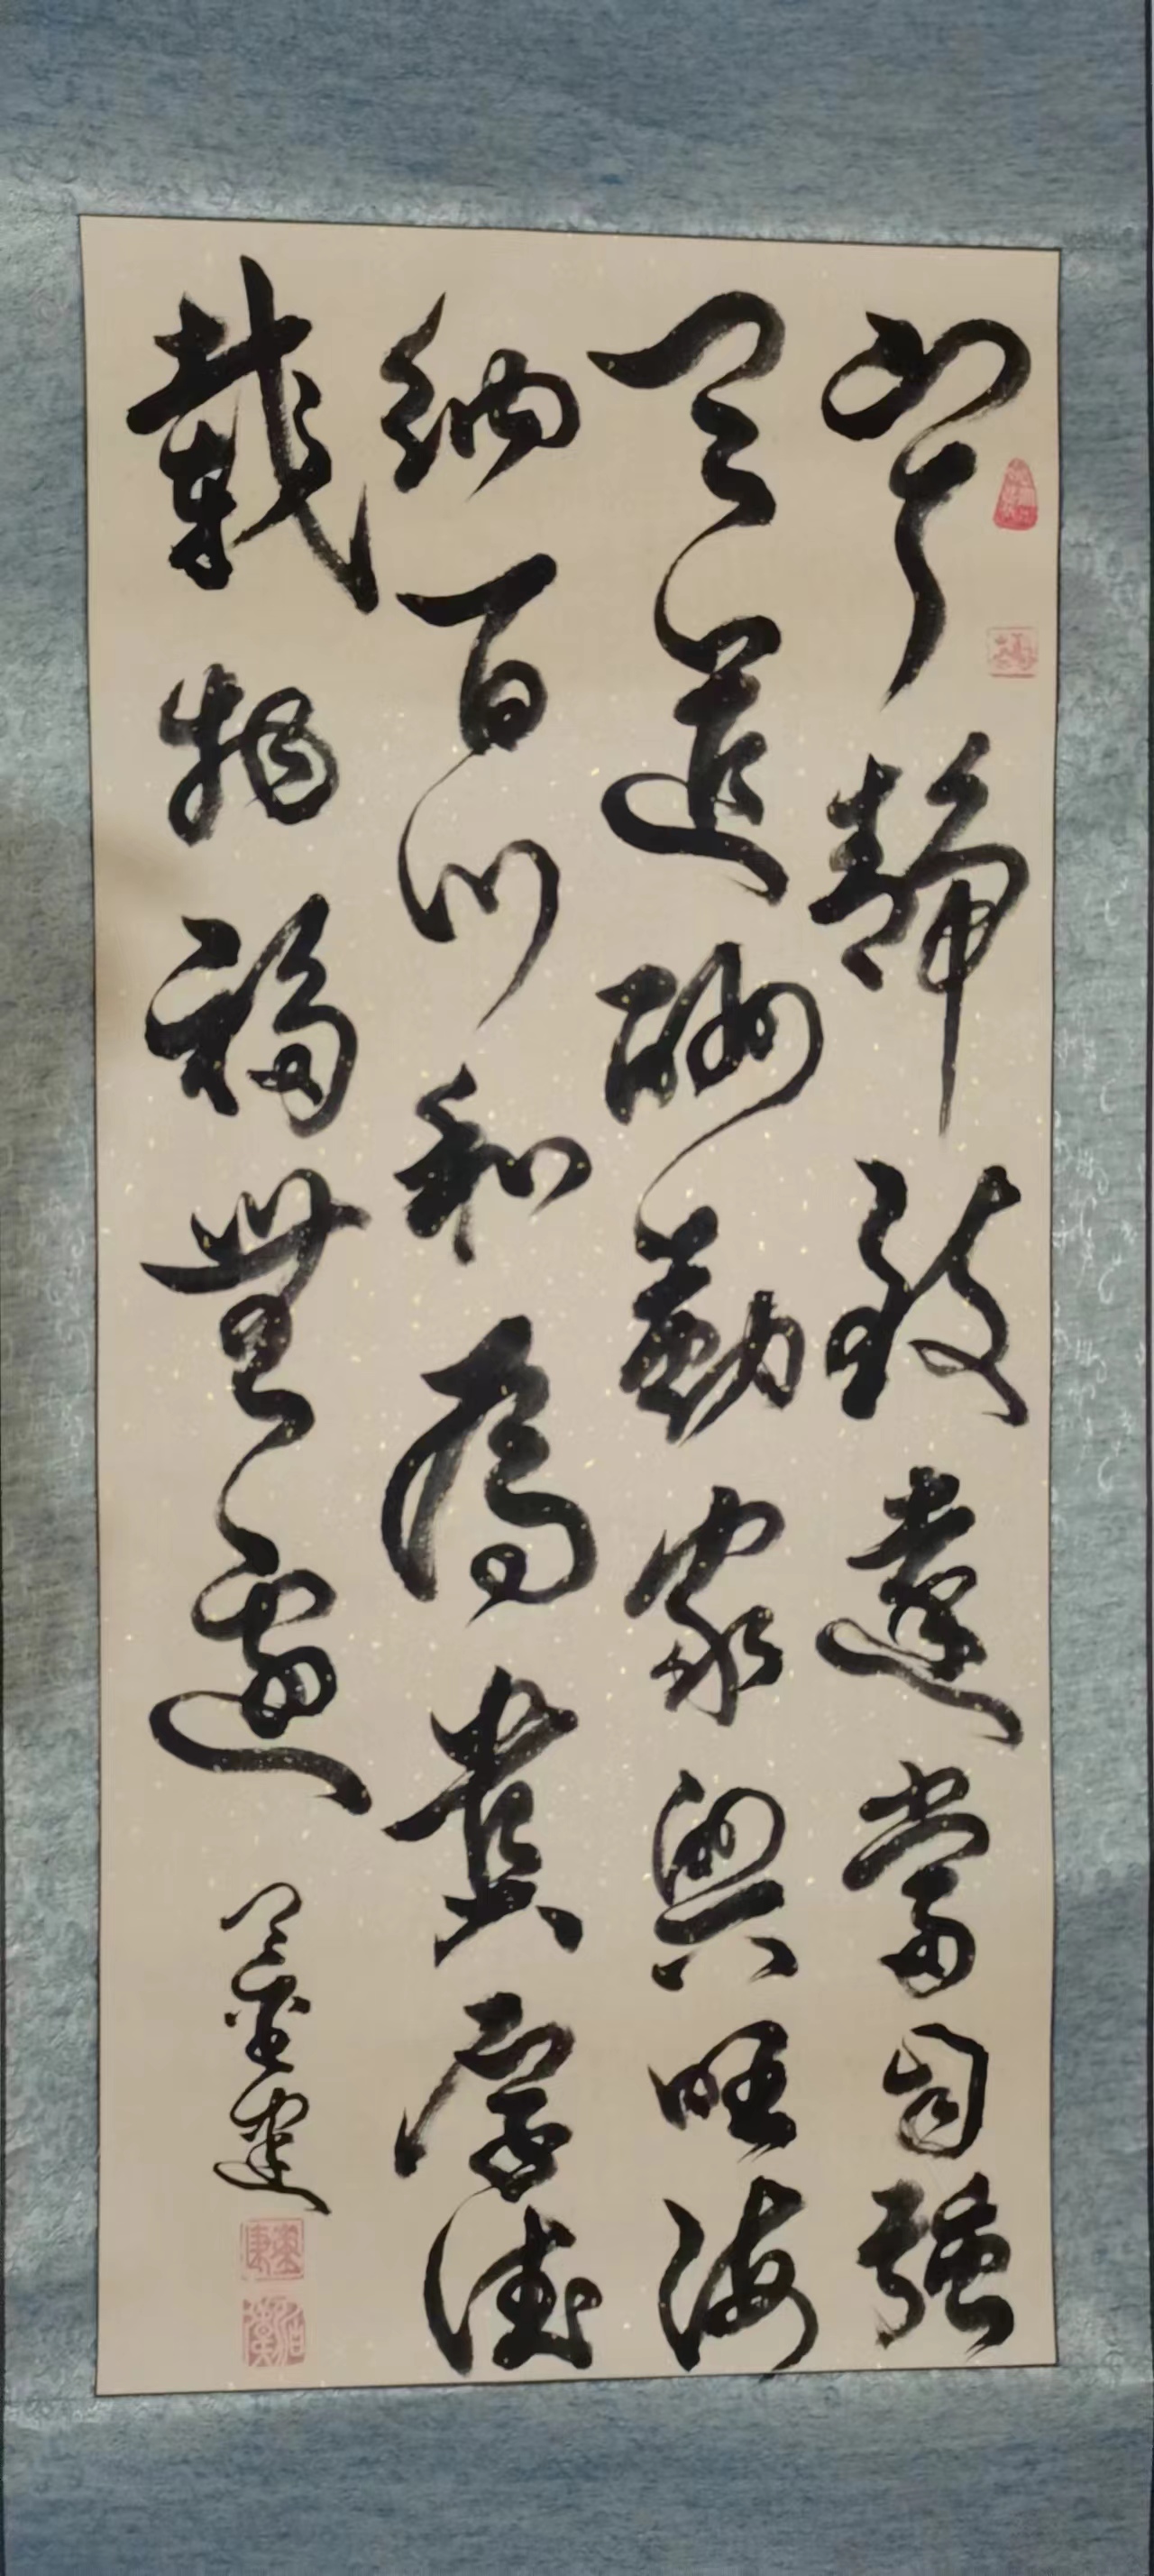 心宁静致远当自强
天道酬勤家兴旺海
纳百川和为贵厚德
载物福无边